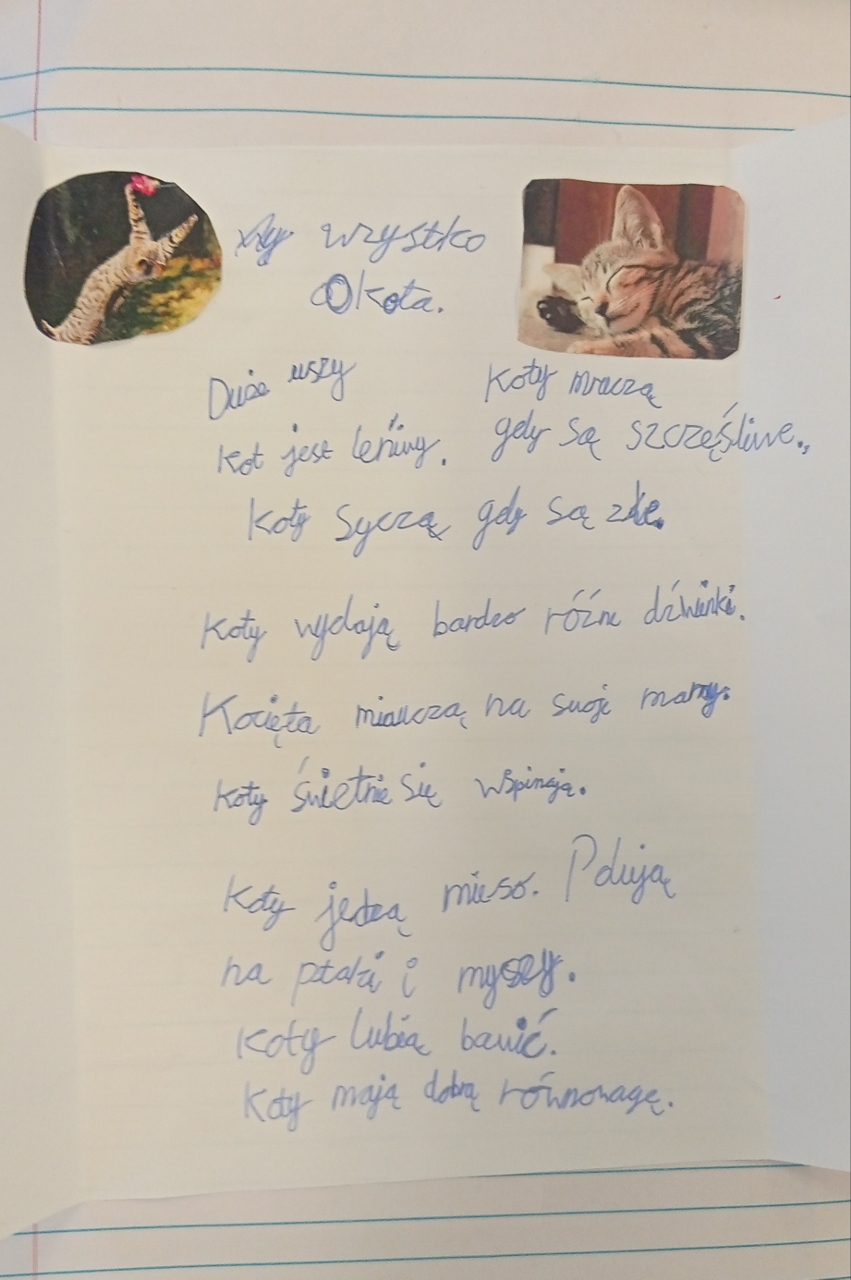 wzystko
OKota.
Duże uszy
Kot jest leńiwy.
Koty mruczą
gdy są szczęśliwe.,
Koty syczą gdy są złe.
Koty wydają bardzo różne dźwinki.
Kocięta miauczą na swoje mamy.
Koty świetnie się wspinają.
Koty jedzą mieso. Polują
na ptaki i myszy.
Koty lubią bawić.
Koty mają dobrą równowagę.